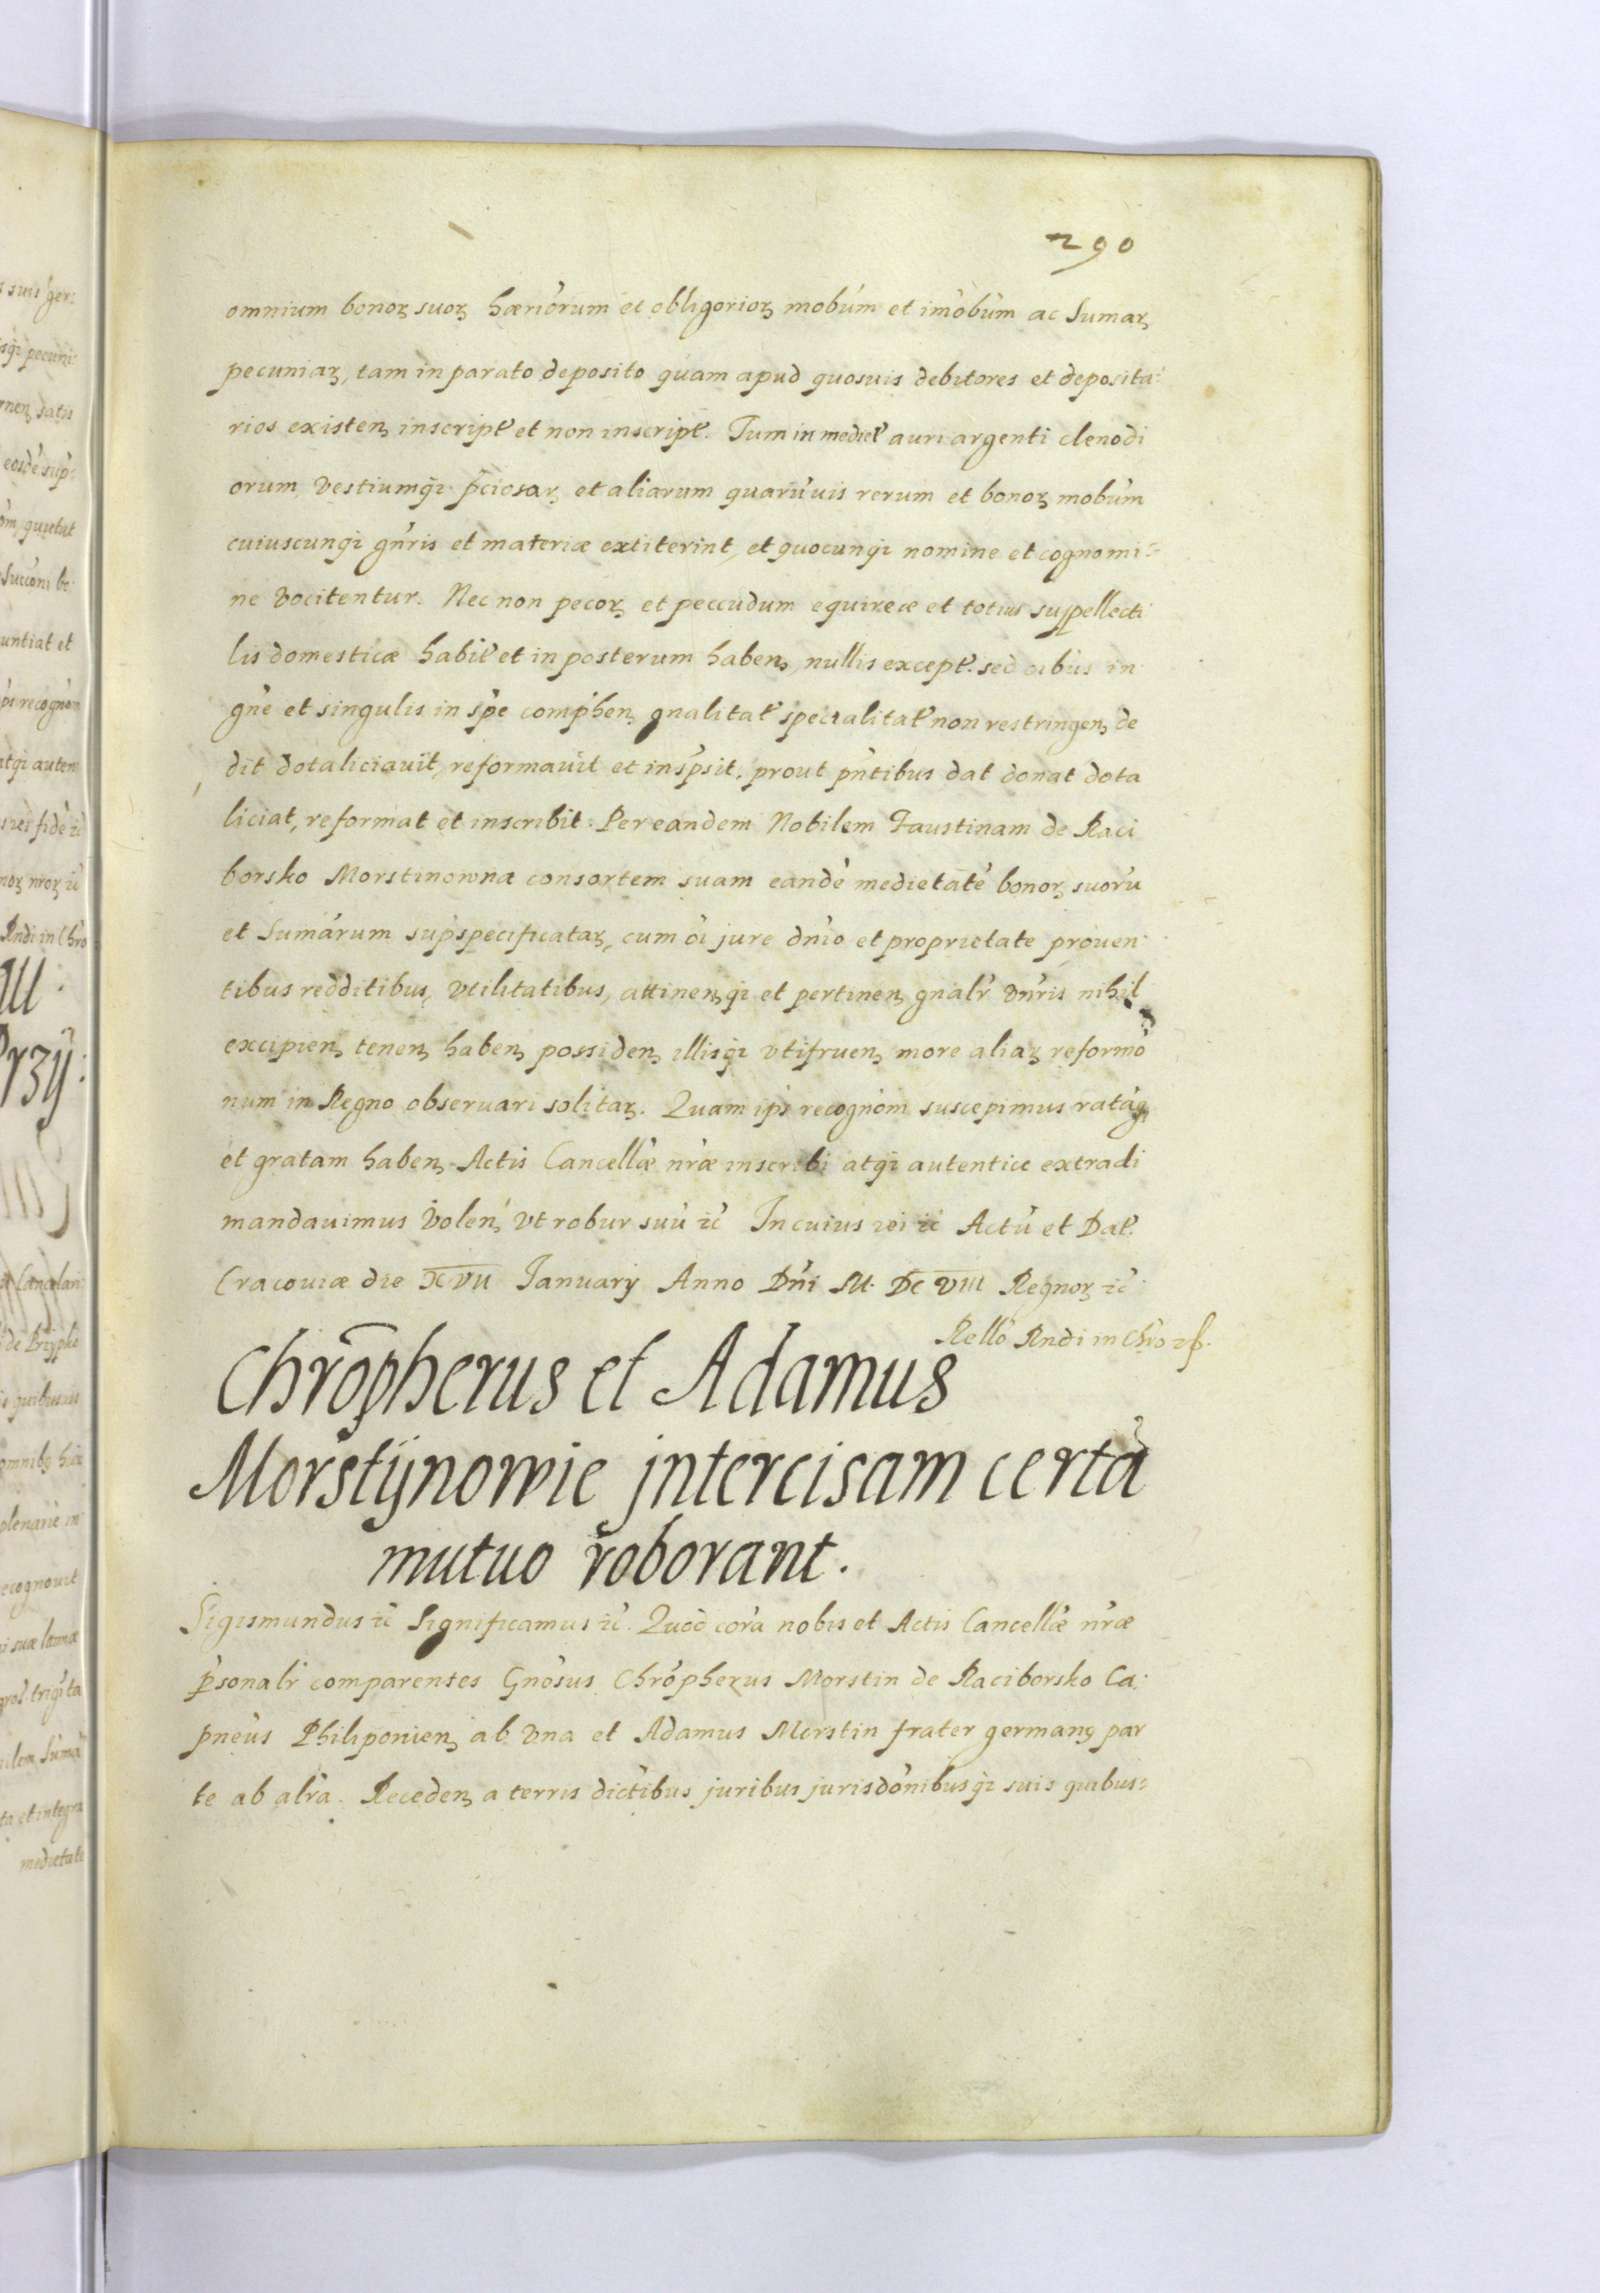 290
omnium bonoꝝ suoꝝ hærïorum et obligorioꝝ mobúm et imóbúm ac Sumaꝝ
pecuniaꝝ, tam in parato deposito quam apud quosuis debitores et deposita:
rios existenꝫ inscript' et non inscript'. Tum in mediet' auri argenti clenodi
orum, vestiumqꝫ p̃ciosaꝝ et aliarum quarũuis rerum et bonoꝝ mobúm
cuiuscunqꝫ gñris et materiæ extiterint, et quocunqꝫ nomine et cognomi=
ne vocitentur. Nec non pecoꝝ et peccudum equireæ et totius suppellecti
lis domesticæ habit' et in posterum habenꝫ nullis except'. sed oĩbus in
gñe et singulis in spẽ comp̃henꝫ gnalitat' specialitat' non restringenꝫ de
dit dotaliciauit, reformauit et inspsit. prout pñtibus dat donat dota
liciat, reformat et inscribit. Per eandem Nobilem Faustinam de Raci
borsko Morstinowna consortem suam eandẽ medietatẽ bonoꝝ suorũ
et Sumarum sup̃specificataꝝ, cum oĩ jure dñio et proprietate prouen
tibus redditibus, vtilitatibus, attinenꝫqꝫ et pertinenꝫ gnalr̃ vñris nihil
excipienꝫ tenenꝫ habenꝫ possidenꝫ illisqꝫ vtifruenꝫ more aliaꝝ reformõ
num in Regno obseruari solitaꝝ. Quam ips̃ recognõm suscepimus ratãqꝫ
et gratam habenꝫ Actis Cancellæ̃ nr̃æ inscribi atqꝫ autentice extradi
mandauimus volen̾ vt robur suũ ꝛc̃ In cuius rei ꝛc̃ Actũ et Dat'.
Cracouiæ die XVII January Anno Dñi M. DC VIII Regnoꝝ ꝛc̃
Rellõ Rndi in Chrõ
Chrõpherus et Adamus
Morstÿnowie jntercisam certã
mutuo roborant.
Sigismundus ꝛc̃ Significamus ꝛc̃. Quod corã nobis et Actis Cancellæ̃ nr̃æ
ꝑsonalr̃ comparentes Gnõsus Chrõpherus Morstin de Raciborsko Ca:
pneũs Philiponienꝫ ab vna et Adamus Morstin frater germanꝰ par
te ab alr̃a. Recedenꝫ a terris dictĩbus juribus jurisdõnibusqꝫ suis quibus=